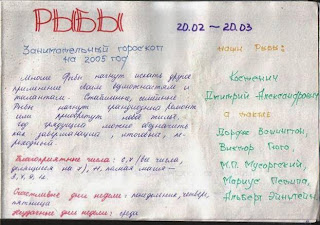 РЫБЫ
20.02 — 20.03
Занимательный гороскоп
на 2005 год
Многие Рыбы начнут искать другое
применение своим возможностям и
талантам. Семейные
Рыбы начнут грандиозный ремонт
или приобретут новое жильё.
год можно обозначить
как завершающий, итоговый, пе-
реходный.
Благоприятные числа: (все числа,
делящиеся на
Счастливые дни недели: понедельник, четверг,
пятница
Неудачные дни недели: среда
Наши Рыбы:
Костенич
Дмитрий Александрович
а также
Джордж Вашингтон,
Виктор Гюго,
М.П. Мусоргский,
Мариус Петипа,
Альберт Эйнштейн